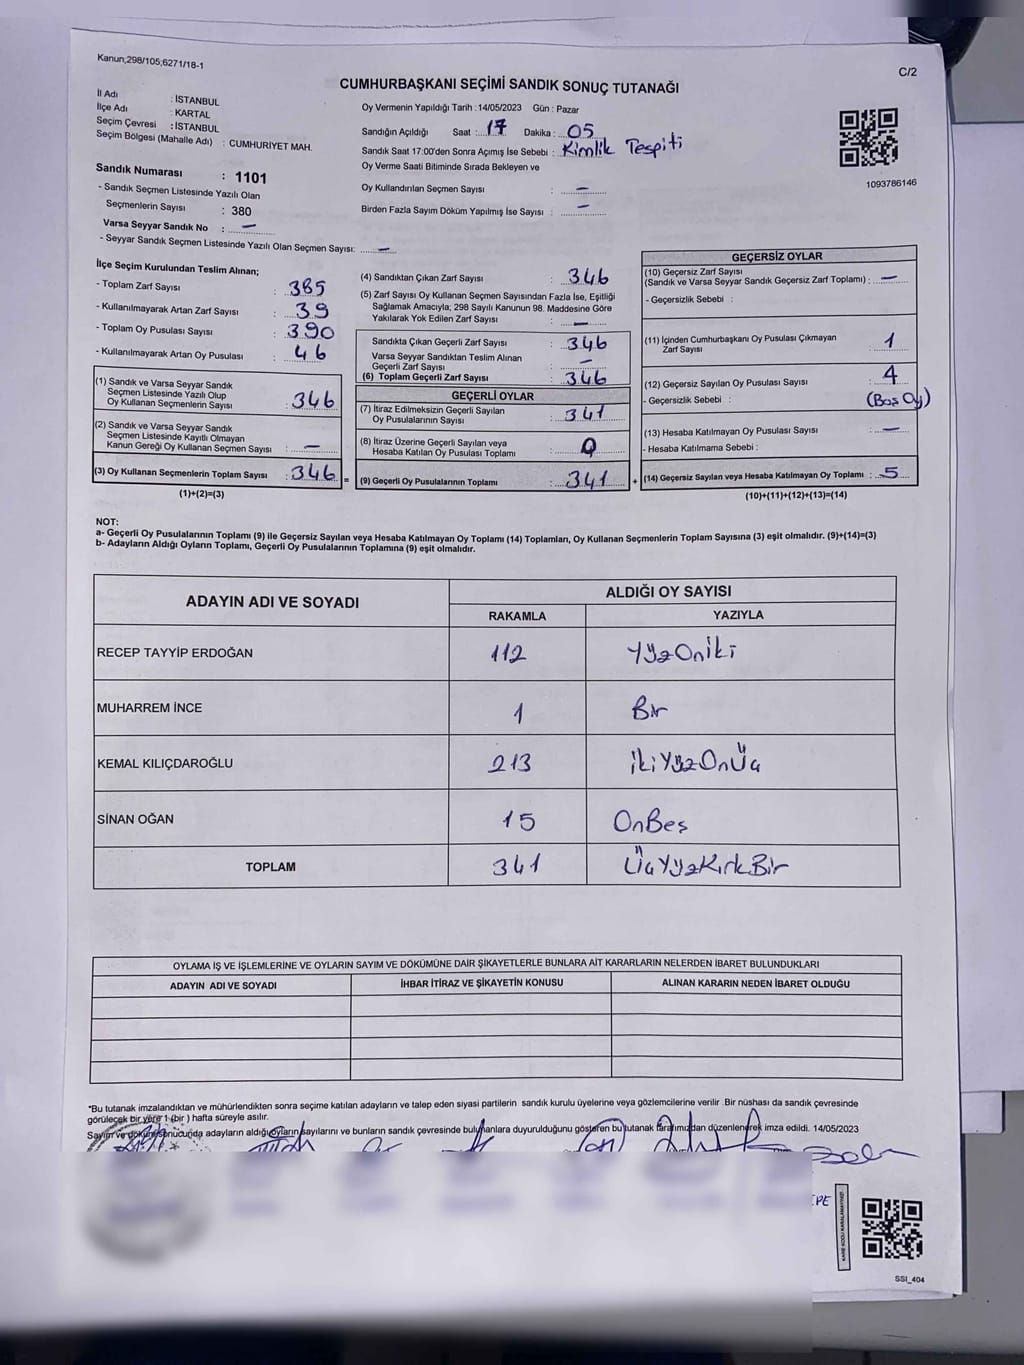 Kanun,298/105;6271/18-1
C/2
CUMHURBAŞKANI SEÇİMİ SANDIK SONUÇ TUTANAĞI
İl Adı : İSTANBUL
İlçe Adı : KARTAL
Seçim Çevresi : İSTANBUL
Seçim Bölgesi (Mahalle Adı) : CUMHURİYET MAH.
Sandık Numarası : 1101
- Sandık Seçmen Listesinde Yazılı Olan
Seçmenlerin Sayısı : 380
Varsa Seyyar Sandık No : —
- Seyyar Sandık Seçmen Listesinde Yazılı Olan Seçmen Sayısı: —
Oy Vermenin Yapıldığı Tarih : 14/05/2023 Gün : Pazar
Sandığın Açıldığı Saat : 17 Dakika : 05
Sandık Saat 17:00'den Sonra Açımış İse Sebebi : Kimlik Tespiti
Oy Verme Saati Bitiminde Sırada Bekleyen ve
Oy Kullandırılan Seçmen Sayısı : —
Birden Fazla Sayım Döküm Yapılmış İse Sayısı : —
1093786146
İlçe Seçim Kurulundan Teslim Alınan;
- Toplam Zarf Sayısı : 385
- Kullanılmayarak Artan Zarf Sayısı : 39
- Toplam Oy Pusulası Sayısı : 390
- Kullanılmayarak Artan Oy Pusulası : 46
(1) Sandık ve Varsa Seyyar Sandık
Seçmen Listesinde Yazılı Olup
Oy Kullanan Seçmenlerin Sayısı : 346
(2) Sandık ve Varsa Seyyar Sandık
Seçmen Listesinde Kayıtlı Olmayan
Kanun Gereği Oy Kullanan Seçmen Sayısı : —
(3) Oy Kullanan Seçmenlerin Toplam Sayısı : 346 =
(1)+(2)=(3)
(4) Sandıktan Çıkan Zarf Sayısı : 346
(5) Zarf Sayısı Oy Kullanan Seçmen Sayısından Fazla İse, Eşitliği
Sağlamak Amacıyla; 298 Sayılı Kanunun 98. Maddesine Göre
Yakılarak Yok Edilen Zarf Sayısı : —
Sandıkta Çıkan Geçerli Zarf Sayısı : 346
Varsa Seyyar Sandıktan Teslim Alınan
Geçerli Zarf Sayısı : —
(6) Toplam Geçerli Zarf Sayısı : 346
GEÇERLİ OYLAR
(7) İtiraz Edilmeksizin Geçerli Sayılan
Oy Pusulalarının Sayısı : 341
(8) İtiraz Üzerine Geçerli Sayılan veya
Hesaba Katılan Oy Pusulası Toplamı : 0
(9) Geçerli Oy Pusulalarının Toplamı : 341 +
GEÇERSİZ OYLAR
(10) Geçersiz Zarf Sayısı
(Sandık ve Varsa Seyyar Sandık Geçersiz Zarf Toplamı) : —
- Geçersizlik Sebebi :
(11) İçinden Cumhurbaşkanı Oy Pusulası Çıkmayan
Zarf Sayısı : 1
(12) Geçersiz Sayılan Oy Pusulası Sayısı : 4
- Geçersizlik Sebebi : (Boş Oy)
(13) Hesaba Katılmayan Oy Pusulası Sayısı : —
- Hesaba Katılmama Sebebi :
(14) Geçersiz Sayılan veya Hesaba Katılmayan Oy Toplamı : 5
(10)+(11)+(12)+(13)=(14)
NOT:
a- Geçerli Oy Pusulalarının Toplamı (9) ile Geçersiz Sayılan veya Hesaba Katılmayan Oy Toplamı (14) Toplamları, Oy Kullanan Seçmenlerin Toplam Sayısına (3) eşit olmalıdır. (9)+(14)=(3)
b- Adayların Aldığı Oyların Toplamı, Geçerli Oy Pusulalarının Toplamına (9) eşit olmalıdır.
ADAYIN ADI VE SOYADI ALDIĞI OY SAYISI
RAKAMLA YAZIYLA
RECEP TAYYİP ERDOĞAN 112 YüzOniki
MUHARREM İNCE 1 Bir
KEMAL KILIÇDAROĞLU 213 İkiYüzOnÜç
SİNAN OĞAN 15 OnBeş
TOPLAM 341 ÜçYüzKırkBir
OYLAMA İŞ VE İŞLEMLERİNE VE OYLARIN SAYIM VE DÖKÜMÜNE DAİR ŞİKAYETLERLE BUNLARA AİT KARARLARIN NELERDEN İBARET BULUNDUKLARI
ADAYIN ADI VE SOYADI İHBAR İTİRAZ VE ŞİKAYETİN KONUSU ALINAN KARARIN NEDEN İBARET OLDUĞU
"Bu tutanak imzalandıktan ve mühürlendikten sonra seçime katılan adayların ve talep eden siyasi partilerin sandık kurulu üyelerine veya gözlemcilerine verilir .Bir nüshası da sandık çevresinde
görülecek bir yere 1 (bir ) hafta süreyle asılır.
Sayım ve döküm sonucunda adayların aldığı oyların sayılarını ve bunların sandık çevresinde bulunanlara duyurulduğunu gösteren bu tutanak tarafımızdan düzenlenerek imza edildi. 14/05/2023
KARE KODU KARALAMAYINIZ!
SSI_404